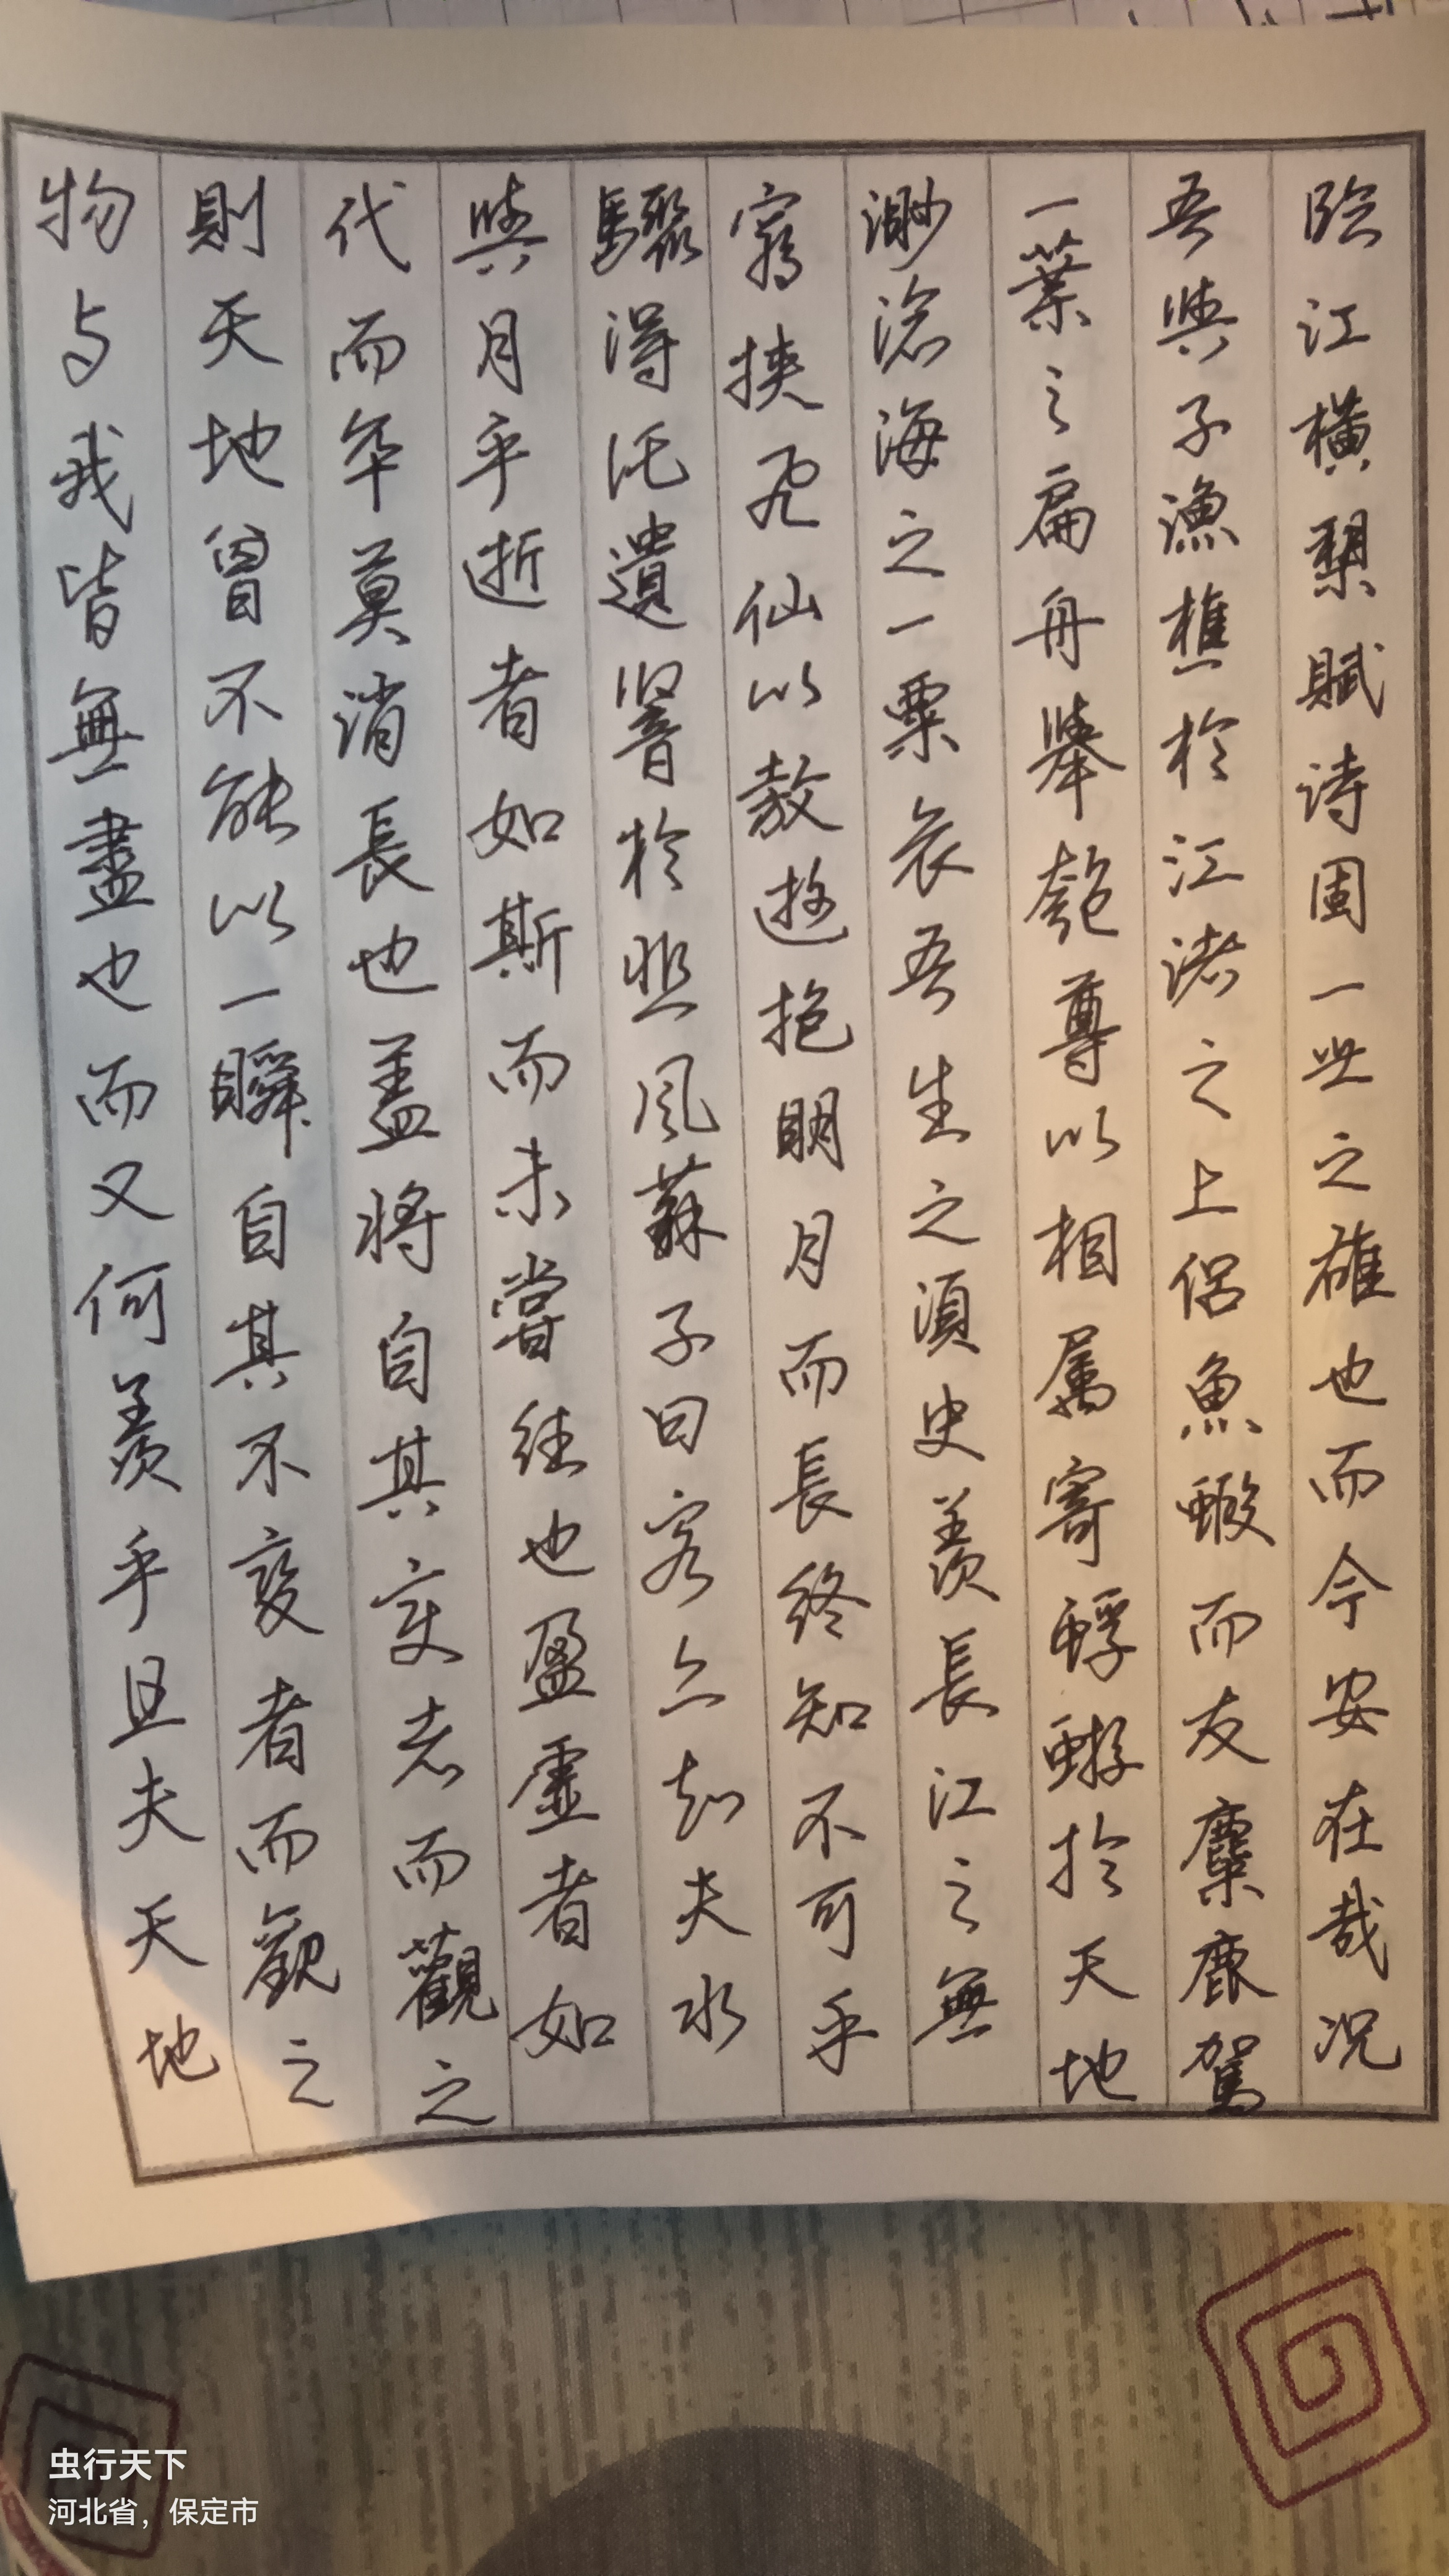 臨江橫槊賦诗固一世之雄也而今安在哉况
吾與子漁樵於江渚之上侣魚蝦而友麋鹿駕
一葉之扁舟舉匏尊以相属寄蜉蝣於天地
渺滄海之一粟哀吾生之須臾羨長江之無
窮挟飛仙以敖遊抱明月而長終知不可乎
驟得託遺響於悲風蘇子曰客亦知夫水
與月乎逝者如斯而未嘗往也盈虚者如
代而卒莫消長也盖将自其变者而觀之
則天地曾不能以一瞬自其不變者而觀之
物与我皆無盡也而又何羨乎且夫天地
虫行天下
河北省，保定市